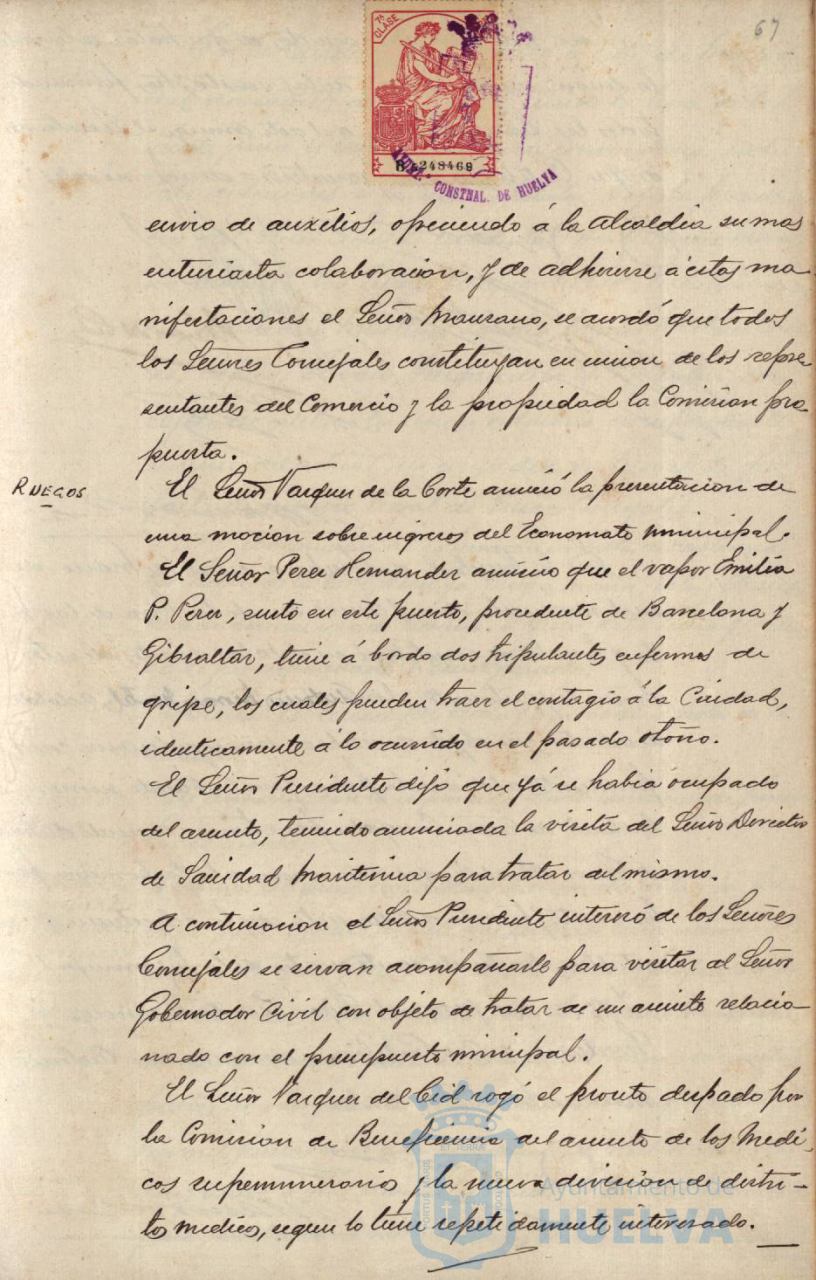 67
7ª CLASE
B 5,248,469
AYUNT. CONSTNAL. DE HUELVA
envio de auxilios, ofreciendo á la Alcaldia su mas
entusiasta colaboracion, y de adherirse á estas ma
nifestaciones el Señor Manzano, se acordó que todos
los Señores Concejales constituyan en union de los repre-
sentantes del Comercio y la propiedad la Comision pro
puesta.
RUEGOS
El Señor Vazquez de la Corte anunció la presentacion de
una mocion sobre ingresos del Economato municipal.
El Señor Perez Hernandez anuncio que el vapor Emilia
P. Perez, surto en este puerto, procedente de Barcelona y
Gibraltar, tiene á bordo dos tripulantes enfermos de
gripe, los cuales pueden traer el contagio á la Ciudad,
identicamente á lo ocurrido en el pasado otoño.
El Señor Presidente dijo que yá se habia ocupado
del asunto, teniendo anunciada la visita del Señor Director
de Sanidad Maritima para tratar del mismo.
A continuacion el Señor Presidente interesó de los Señores
Concejales se sirvan acompañarle para visitar al Señor
Gobernador Civil con objeto de tratar de un asunto relacio
nado con el presupuesto municipal.
El Señor Vazquez del Cid rogó el pronto despacho por
la Comision de Beneficencia del asunto de los Medi-
cos supernumerarios y la nueva division de distri-
tos medicos, segun lo tiene repetidamente interesado.
Ayuntamiento de
HUELVA